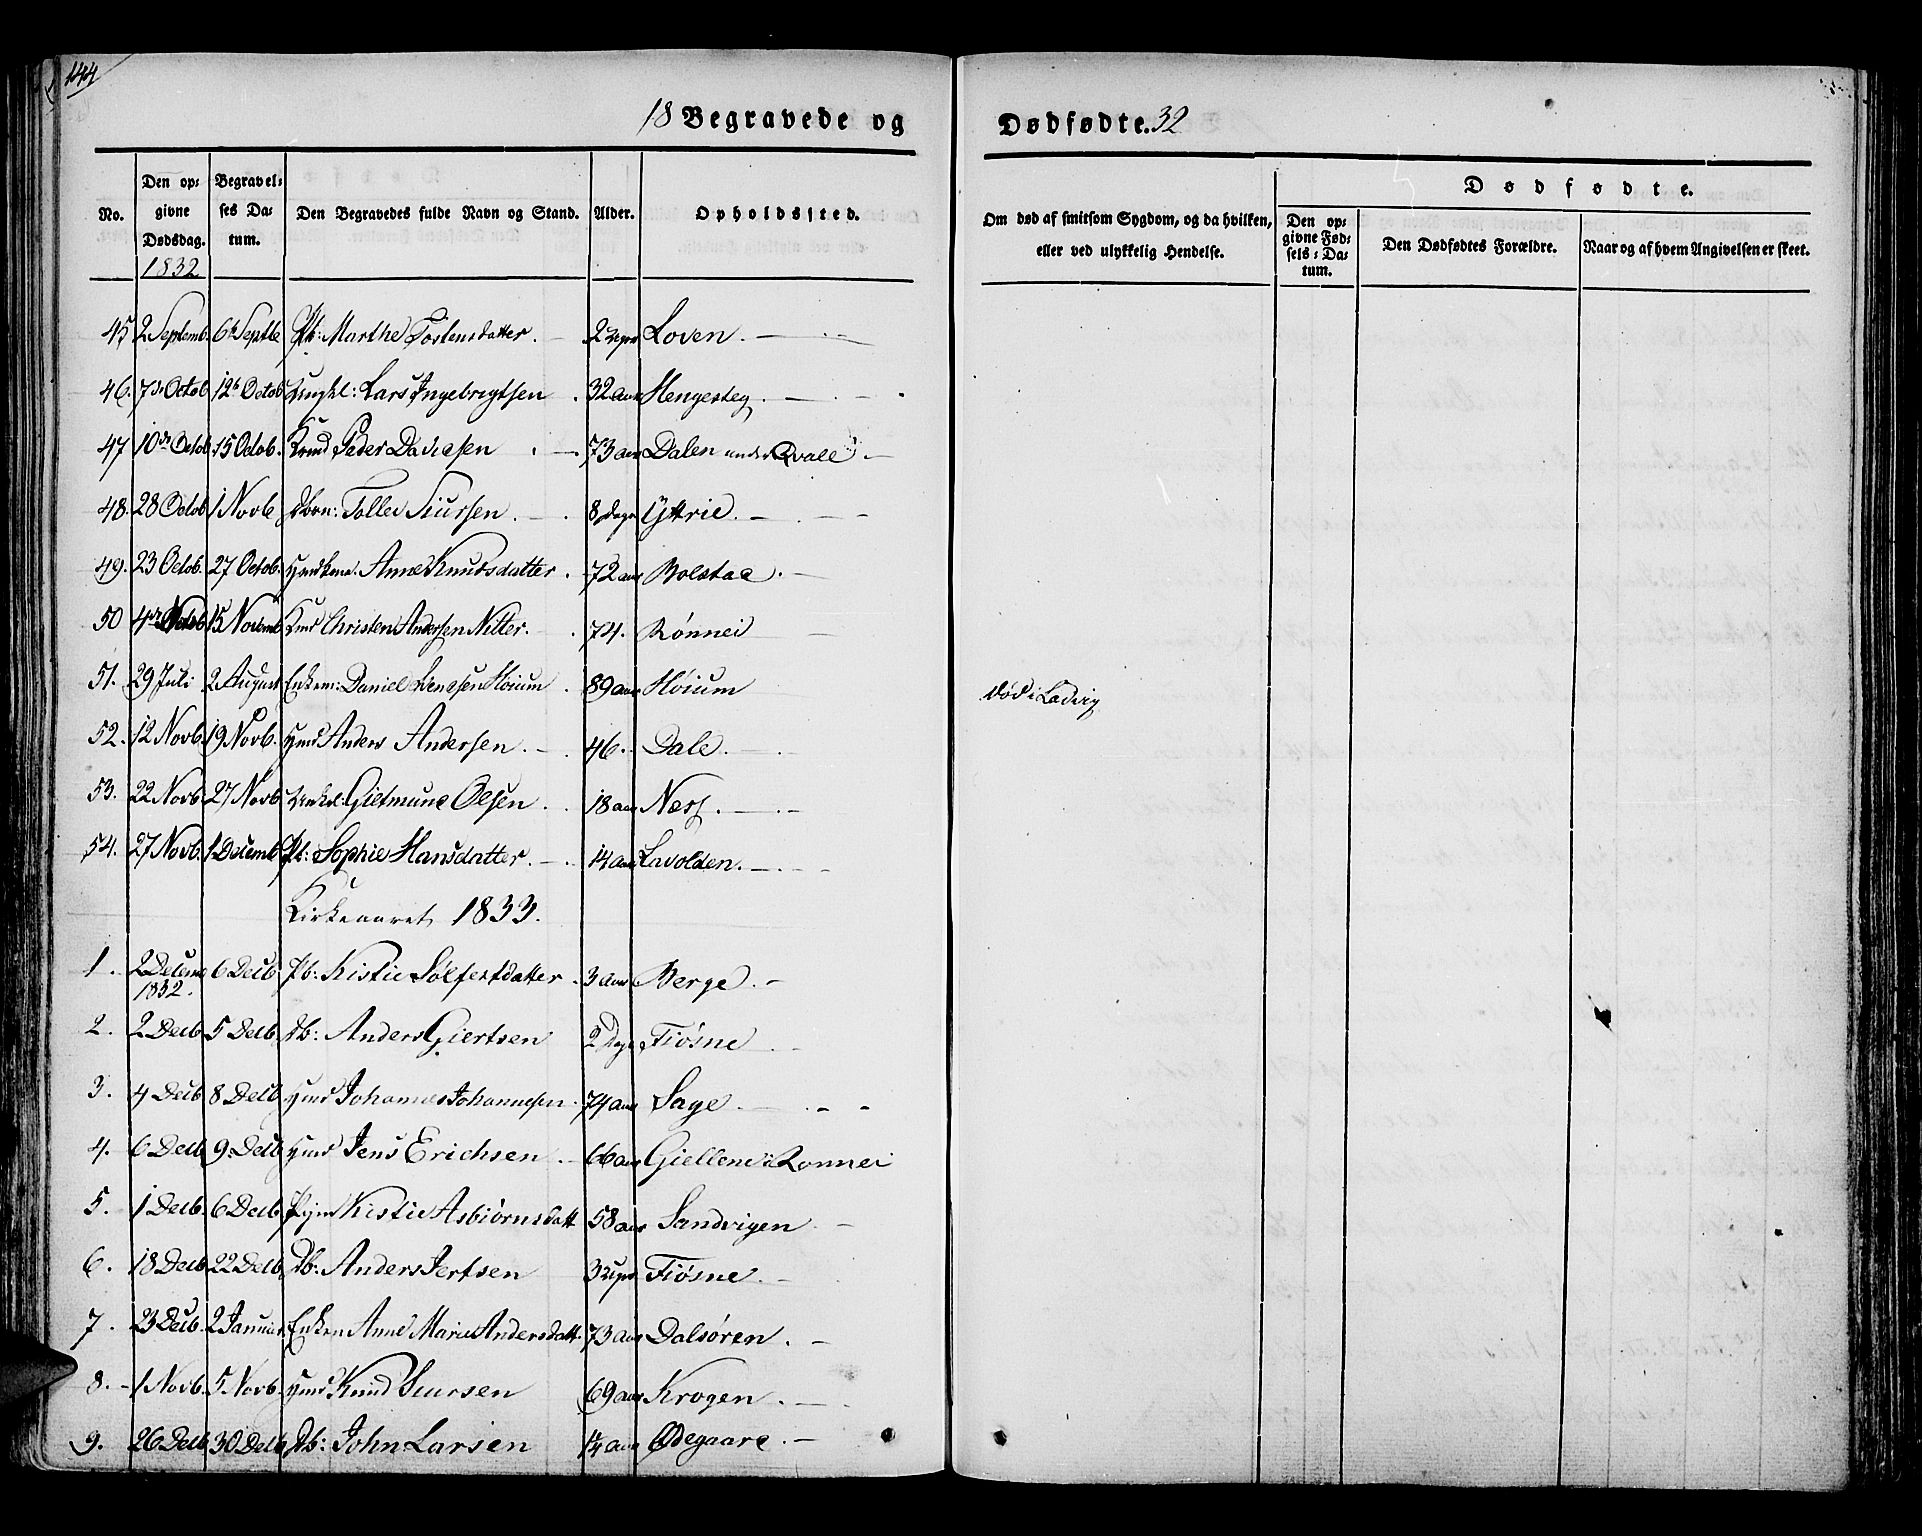 144
18 Begravede og Dødfødte. 32
No. Den opgivne Dødsdag. Begravelses Datum. Den Begravedes fulde Navn og Stand. Alder. Opholdssted. Om død af smitsom Sygdom, og da hvilken, eller ved ulykkelig Hendelse. Dødfødte. Den opgivne Fødsels-Datum. Den Dødfødtes Forældre. Naar og af hvem Angivelsen er skeet.
1832
45 2 Septemb. 6te Septbr Pb: Marthe Tostensdatter. 2 Loven.
46. 7de Octob 12te Octob Ungkl: Lars Ingebrigtsen 32 aar Hengesteg.
47 10de Octob 15 Octob. Kmd Peder Davidsen 73 aar Dalen under Qvale
48. 28 Octob 1 Novb Dbrn: Tollev Siursen. 8 Dage Yttrie.
49. 23 Octob. 27 Octob. Anne Knudsdatter. 72 aar Bolstad.
50 4de 15 Novemb Christen Andersen Nitter. 74. Rønnei
51. 29 Juli 2 August Enkem: Daniel Høium 89 aar Høium død i Ladvig
52. 12 Novb. 19 Novb. Hmd Anders Andersen. 46. Dale.
53. 22 Novb. 27 Novb Gietmund Olsen. 18 aar Næss.
54. 27 Novb. 1 Decemb Pb: Sophie Hansdatter. 14 aar Lavolden.
Kirkeaaret 1833.
1. 2 Decemb 1832. 6 Decb Pb: Kistie Sølfestdatter. 3 aar Berge.
2. 2 Decb 5 Decb. Db: Anders Giertsen 2 Dage Fiøsne
3. 4 Decb 8 Decb Hmd Johannes Johannesen. 74 aar Sage.
4. 6 Decb 9. Decb Hmd Jens Erichsen. 66 aar Giellene i Rønnei
5. 1 Decb. 6 Decb. Kistie Asbiørnsdatt 58 aar Sandvigen
6. 18 Decb 22 Decb. Db: Anders Jertsen 3 Fiøsne.
7. 23 Decb. 2 Januar. Enken Anne Marie Andersdatt. 73 aar Dalsøren.
8. 1 Novb. 5 Novb. Hmd Knud Siursen 69 aar Krogen.
9. 26 Decb 30 Decb Db: John Larsen 14 aar Ødegaard.